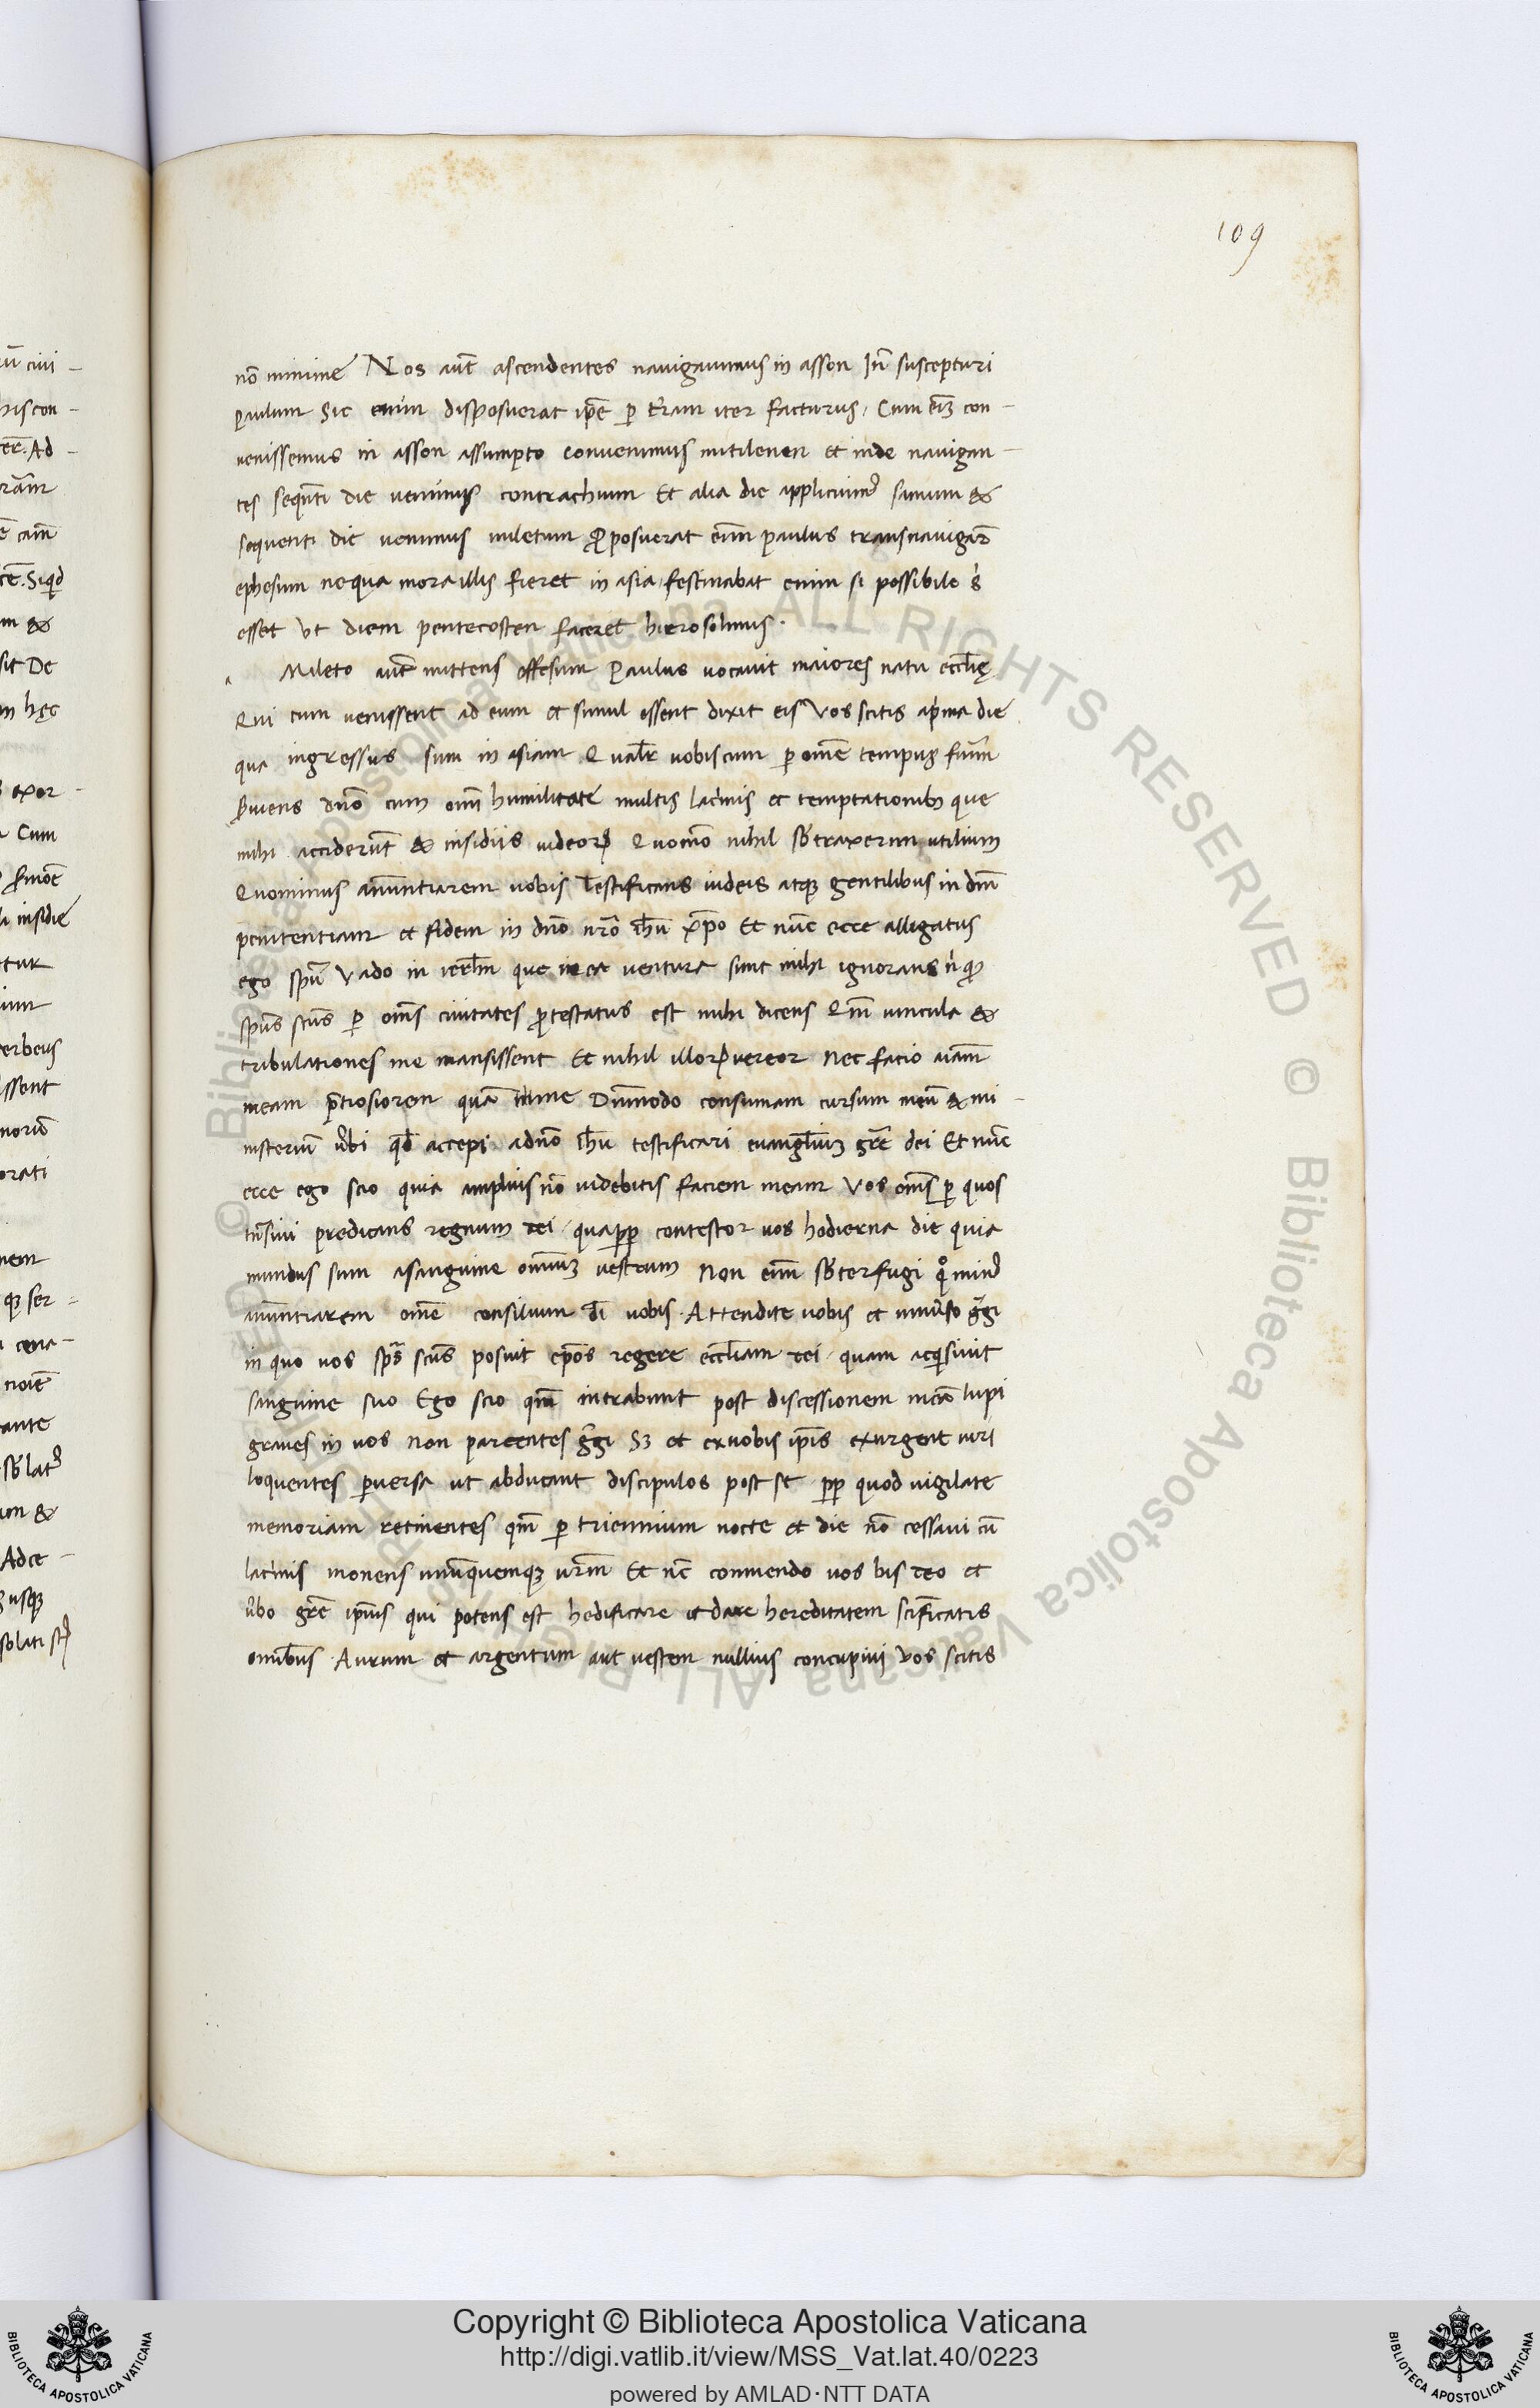 109
nō minime Nos aūt ascendentes nauigauimus in asson In̄ suscepturi
Paulum Sic enim disposuerat ip̄e p̱ t̄ram iter facturus, Cum eīꝫ con-
uenissemus in asson assumpto conuenimus mitilenen et inde nauigan-
tes seqn̄ti die uenimus contrachium Et alia die applicuimꝰ samum &
sequenti die uenimus miletum Ꝓposuerat eīm paulus transnauigar̄
ephesum ne qua mora illis fieret in asia, festinabat enim si possibile s'
esset vt diem pentecosten faceret hierosolimis.
Mileto aūt mittens effesum Paulus uocauit maiores natu eccl̄ię
Qui cum uenissent ad eum et simul essent dixit eis Vos scitis ap'ma die
qua ingressus sum in asiam Qualr̄ uobiscum p̱ om̄e tempus fūim
S̓uiens dn̄o cum om̄i humilitate multis lac'mis et temptationibꝫ que
mihi acciderūt & insidiis iudeoꝝ Quom̄o nihil sb̄traxerim utilium
Quominus anūntiarem uobis Testificans iudeis atqꝫ gentilibus in dm̄
penitentiam et fidem in dn̄o nr̄o ih̄u xp̄o Et nūc ecce alligatus
ego spū Vado in ierl̄m que in ea uentura sunt mihi ignorans n' qđ
spūs scūs p̱ om̄s ciuitates ꝓtestatus est mihi dicens Qm̄ uincula &
tribulationes me mansissent Et nihil illoꝝ uereor Nec facio aīam
meam p̄tiosiorem quā me Dūmodo consumam cursum meū & mi-
nisteriū u̓bi qđ accepi adn̄o ih̄u testificari euangl̄iuꝫ gr̄e dei Et nūc
ecce ego scio quia amplius nō uidebitis faciem meam Vos om̄s p̱ quos
tn̄siui predicans regnum dei, quap̱p̱ contestor uos hodierna die quia
mundus sum asanguine omniuꝫ uestrum Non eīm sb̄terfugi q°minꝰ
anūntiarem om̄e consilium dī uobis. Attendite uobis et uniu̓so gr̄gi
in quo uos sps̄ scūs posuit ep̄os regere eccl̄iam dei quam acq'siuit
sanguine suo Ego scio qm̄ intrabunt post discessionem meā lupi
graues in uos non parcentes gr̄gi Sꝫ et exuobis ip̄is exurgent uiri
loquentes p̱uersa ut abducant discipulos post se p̱p̱ quod uigilate
memoriam retinentes qm̄ p̱ triennium nocte et die nō cessaui cū
lac'mis monens unūquemqꝫ ur̄m Et nc̄ commendo uos bis deo et
u̓bo gr̄e ip̄ius qui potens est hedificare et dare hereditatem scīficatis
omībus Aurum et argentum aut uestem nullius concupiui Vos scitis
Copyright © Biblioteca Apostolica Vaticana
http://digi.vatlib.it/view/MSS_Vat.lat.40/0223
powered by AMLAD·NTT DATA